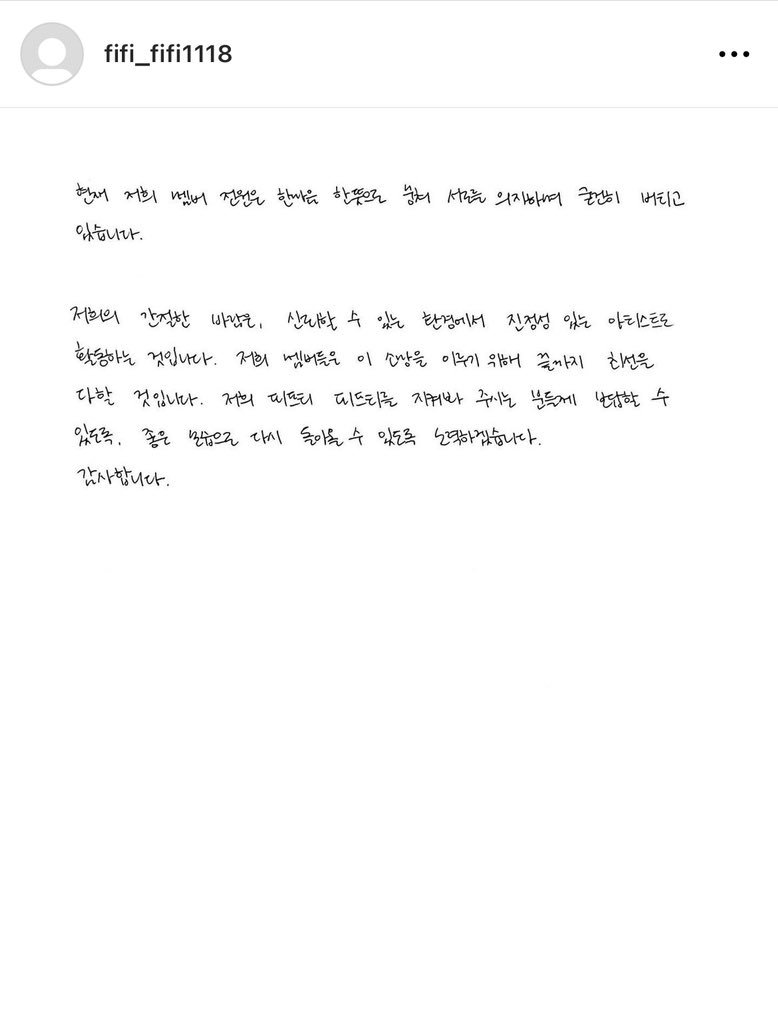 fifi_fifi1118
현재 저희 멤버 전원은 한마음 한뜻으로 뭉쳐 서로를 의지하며 굳건히 버티고
있습니다.
저희의 간절한 바람은, 신뢰할 수 있는 환경에서 진정성 있는 아티스트로
활동하는 것입니다. 저희 멤버들은 이 소망을 이루기 위해 끝까지 최선을
다할 것입니다. 저희 피프티 피프티를 지켜봐 주시는 분들께 보답할 수
있도록, 좋은 모습으로 다시 돌아올 수 있도록 노력하겠습니다.
감사합니다.